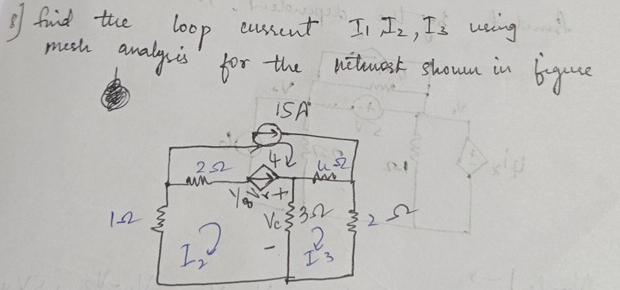 8] find the loop current I1, I2, I3 using
mesh analysis for the network shown in figure
15A
2Ω
4Ω
1Ω
Vc
+
-
3Ω
2 Ω
I2
I3